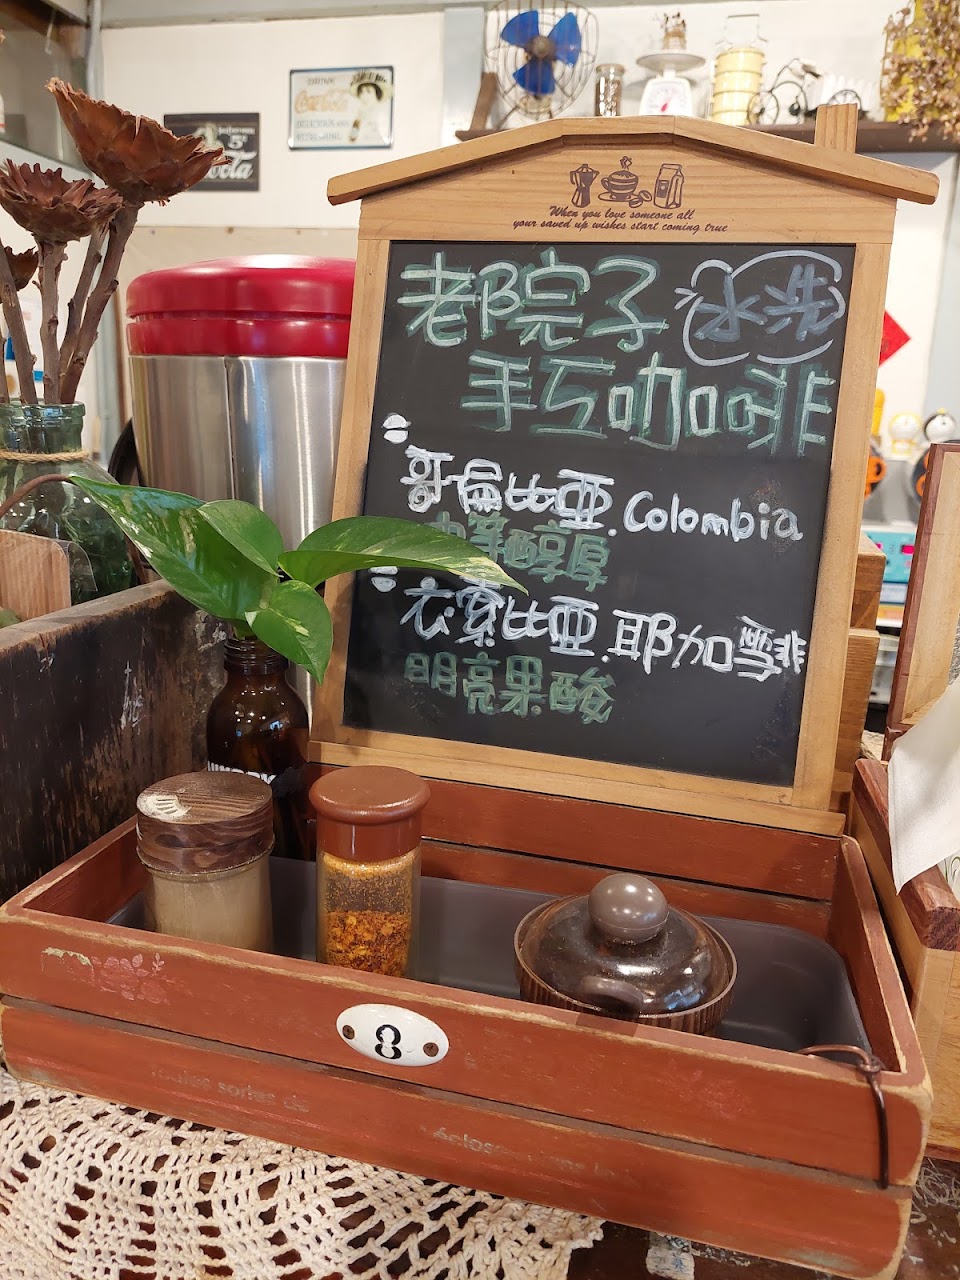 DRINK
Coca-Cola
DELICIOUS AND
REFRESHING
5¢
Cola
When you love someone all
your saved up wishes start coming true
老院子 水洗
手工咖啡
哥倫比亞.Colombia
中等醇厚
衣索比亞.耶加雪非
明亮果酸
8
sortes de